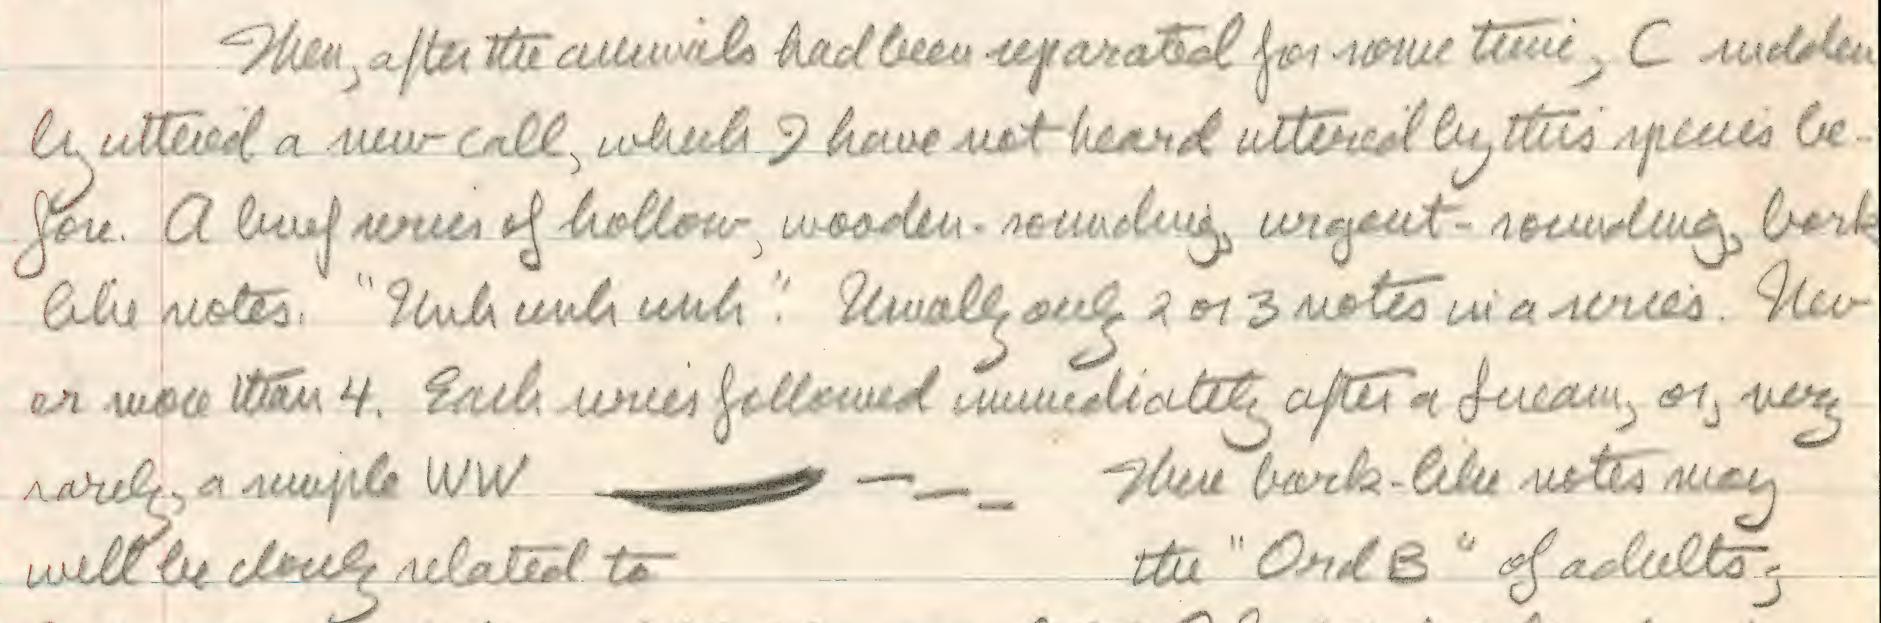 Then, after the animals had been separated for some time, C sudden
ly uttered a new call, which I have not heard uttered by this species be-
fore. A brief series of hollow, wooden-sounding, urgent-sounding, bark
like notes. "Unh unh unh". Usually only 2 or 3 notes in a series. Nev
er more than 4. Each series followed immediately after a Scream, or, very
rarely, a simple WW These bark-like notes may
well be closely related to the "Ord B" of adults;